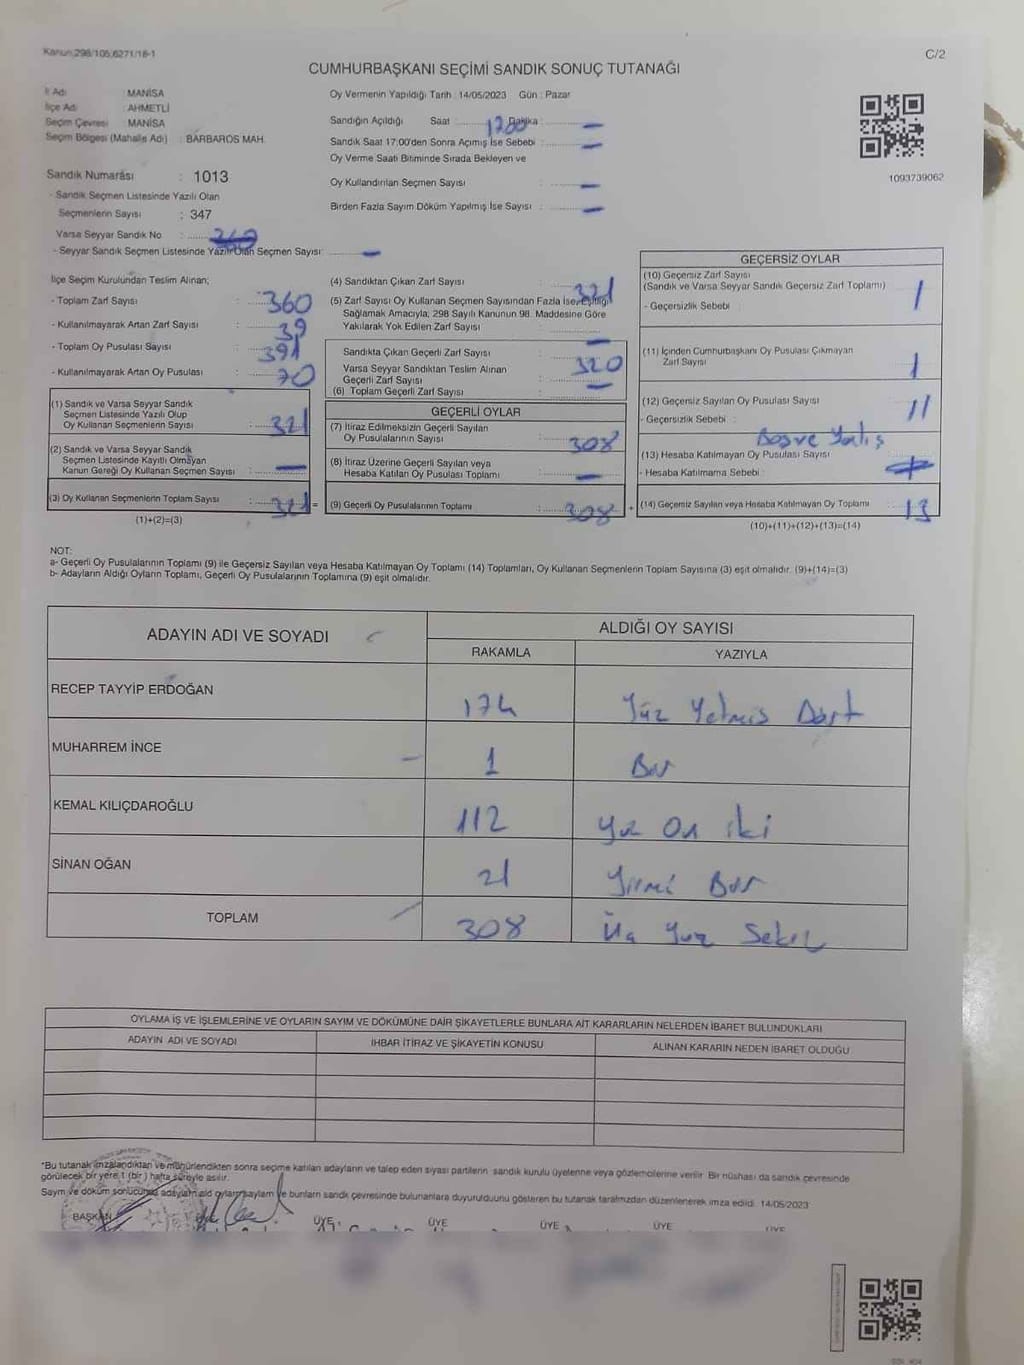 Kanun:298/105;6271/16-1
C/2
CUMHURBAŞKANI SEÇİMİ SANDIK SONUÇ TUTANAĞI
İl Adı : MANİSA
İlçe Adı : AHMETLİ
Seçim Çevresi : MANİSA
Seçim Bölgesi (Mahalle Adı) : BARBAROS MAH.
Sandık Numarası : 1013
- Sandık Seçmen Listesinde Yazılı Olan
Seçmenlerin Sayısı : 347
Varsa Seyyar Sandık No :
- Seyyar Sandık Seçmen Listesinde Yazılı Olan Seçmen Sayısı: —
Oy Vermenin Yapıldığı Tarih : 14/05/2023 Gün : Pazar
Sandığın Açıldığı Saat : 1700 Dakika : —
Sandık Saat 17:00'den Sonra Açımış İse Sebebi : —
Oy Verme Saati Bitiminde Sırada Bekleyen ve
Oy Kullandırılan Seçmen Sayısı : —
Birden Fazla Sayım Döküm Yapılmış İse Sayısı : —
1093739062
İlçe Seçim Kurulundan Teslim Alınan;
- Toplam Zarf Sayısı : 360
- Kullanılmayarak Artan Zarf Sayısı : 39
- Toplam Oy Pusulası Sayısı : 391
- Kullanılmayarak Artan Oy Pusulası : 70
(1) Sandık ve Varsa Seyyar Sandık
Seçmen Listesinde Yazılı Olup
Oy Kullanan Seçmenlerin Sayısı : 321
(2) Sandık ve Varsa Seyyar Sandık
Seçmen Listesinde Kayıtlı Olmayan
Kanun Gereği Oy Kullanan Seçmen Sayısı : —
(3) Oy Kullanan Seçmenlerin Toplam Sayısı : 321 =
(1)+(2)=(3)
(4) Sandıktan Çıkan Zarf Sayısı : 321
(5) Zarf Sayısı Oy Kullanan Seçmen Sayısından Fazla İse, Eşitliği
Sağlamak Amacıyla, 298 Sayılı Kanunun 98. Maddesine Göre
Yakılarak Yok Edilen Zarf Sayısı : —
Sandıkta Çıkan Geçerli Zarf Sayısı : 320
Varsa Seyyar Sandıktan Teslim Alınan
Geçerli Zarf Sayısı : —
(6) Toplam Geçerli Zarf Sayısı :
GEÇERLİ OYLAR
(7) İtiraz Edilmeksizin Geçerli Sayılan
Oy Pusulalarının Sayısı : 308
(8) İtiraz Üzerine Geçerli Sayılan veya
Hesaba Katılan Oy Pusulası Toplamı : —
(9) Geçerli Oy Pusulalarının Toplamı : 308 +
GEÇERSİZ OYLAR
(10) Geçersiz Zarf Sayısı
(Sandık ve Varsa Seyyar Sandık Geçersiz Zarf Toplamı) 1
- Geçersizlik Sebebi :
(11) İçinden Cumhurbaşkanı Oy Pusulası Çıkmayan
Zarf Sayısı 1
(12) Geçersiz Sayılan Oy Pusulası Sayısı 11
- Geçersizlik Sebebi : Boş ve Yanlış
(13) Hesaba Katılmayan Oy Pusulası Sayısı
- Hesaba Katılmama Sebebi :
(14) Geçersiz Sayılan veya Hesaba Katılmayan Oy Toplamı : 13
(10)+(11)+(12)+(13)=(14)
NOT:
a- Geçerli Oy Pusulalarının Toplamı (9) ile Geçersiz Sayılan veya Hesaba Katılmayan Oy Toplamı (14) Toplamları, Oy Kullanan Seçmenlerin Toplam Sayısına (3) eşit olmalıdır. (9)+(14)=(3)
b- Adayların Aldığı Oyların Toplamı, Geçerli Oy Pusulalarının Toplamına (9) eşit olmalıdır.
ADAYIN ADI VE SOYADI
ALDIĞI OY SAYISI
RAKAMLA YAZIYLA
RECEP TAYYİP ERDOĞAN 174 Yüz Yetmiş Dört
MUHARREM İNCE 1 Bir
KEMAL KILIÇDAROĞLU 112 Yüz On iki
SİNAN OĞAN 21 Yirmi Bir
TOPLAM 308 Üç Yüz Sekiz
OYLAMA İŞ VE İŞLEMLERİNE VE OYLARIN SAYIM VE DÖKÜMÜNE DAİR ŞİKAYETLERLE BUNLARA AİT KARARLARIN NELERDEN İBARET BULUNDUKLARI
ADAYIN ADI VE SOYADI İHBAR İTİRAZ VE ŞİKAYETİN KONUSU ALINAN KARARIN NEDEN İBARET OLDUĞU
*Bu tutanak imzalandıktan ve mühürlendikten sonra seçime katılan adayların ve talep eden siyasi partilerin sandık kurulu üyelerine veya gözlemcilerine verilir. Bir nüshası da sandık çevresinde
görülecek bir yere 1 (bir) hafta süreyle asılır.
Sayım ve döküm sonucunda adayların aldığı oyların sayılarını ve bunların sandık çevresinde bulunanlara duyurulduğunu gösteren bu tutanak tarafımızdan düzenlenerek imza edildi. 14/05/2023
BAŞKAN ÜYE ÜYE ÜYE ÜYE ÜYE